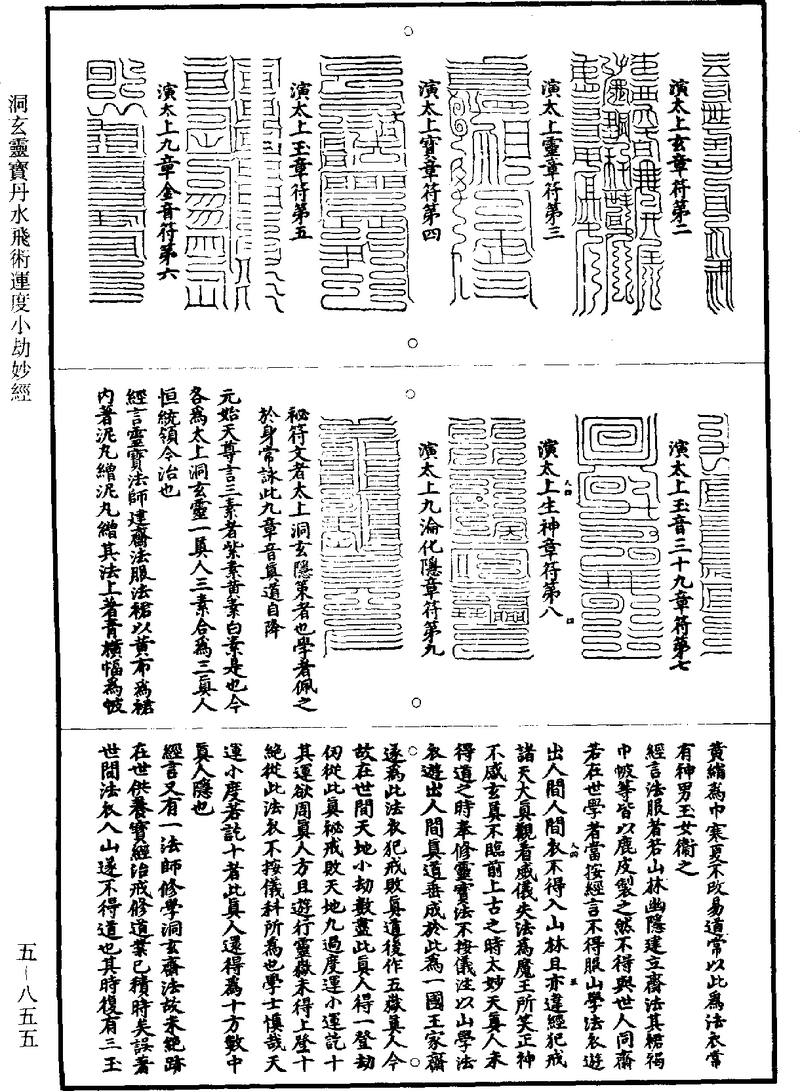 洞玄靈寶丹水飛術運度小劫妙經
五-八五五
演太上玄章符第二
演太上靈章符第三
演太上寶章符第四
演太上玉章符第五
演太上九章金音符第六
演太上玉音三十九章符第七
演太上生神章符第八
演太上九淪化隱章符第九
祕符文者太上洞玄隱策者也學者佩之
於身常詠此九章音真道自降
元始天尊言三素者紫素黄素白素是也今
各為太上洞玄靈一真人三素合為三真人
恒統領令治也
經言靈寶法師建齋法服法裙以黄布為裙
内著泥丸繒泥丸繒其法上著青橫幅為帔
黄絹為巾寒夏不改易道常以此為法衣常
有神男玉女衛之
經言法服者若山林幽隱建立齋法其裙褐
巾帔等皆以鹿皮製之然不得與世人同齋
若在世學者當按經言不得服山學法衣遊
出人間人間衣不得入山林且亦違經犯戒
諸天大真觀看威儀失法為魔王所笑正神
不感玄真不臨前上古之時太妙天真人未
得道之時奉修靈寶法不按儀注以山學法
衣遊出人間真道垂成於此為一國王家齋
遂為此法衣犯戒敗真道後作五嶽真人今
故在世間天地小劫數盡此真人得一登劫
仞從此真祕戒敗天地九過度運小運訖十
其運欲周真人方且遊行靈嶽未得上登十
絕從此法衣不按儀科所為也學士慎哉天
運小度若訖十者此真人還得為十方數中
真人隱也
經言又有一法師修學洞玄齋法故未絕跡
在世供養寶經治戒修道業已積時矣誤著
世間法衣入山遂不得道也其時復有三玉